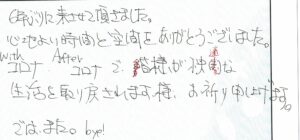 6年ぶりに来させて頂きました。
心地よい時間と空間をありがとうございました。
with After
コロナ コロナ で、皆様が な
生活を取り戻されます様、お祈り申し上げます。
では、また。 bye!